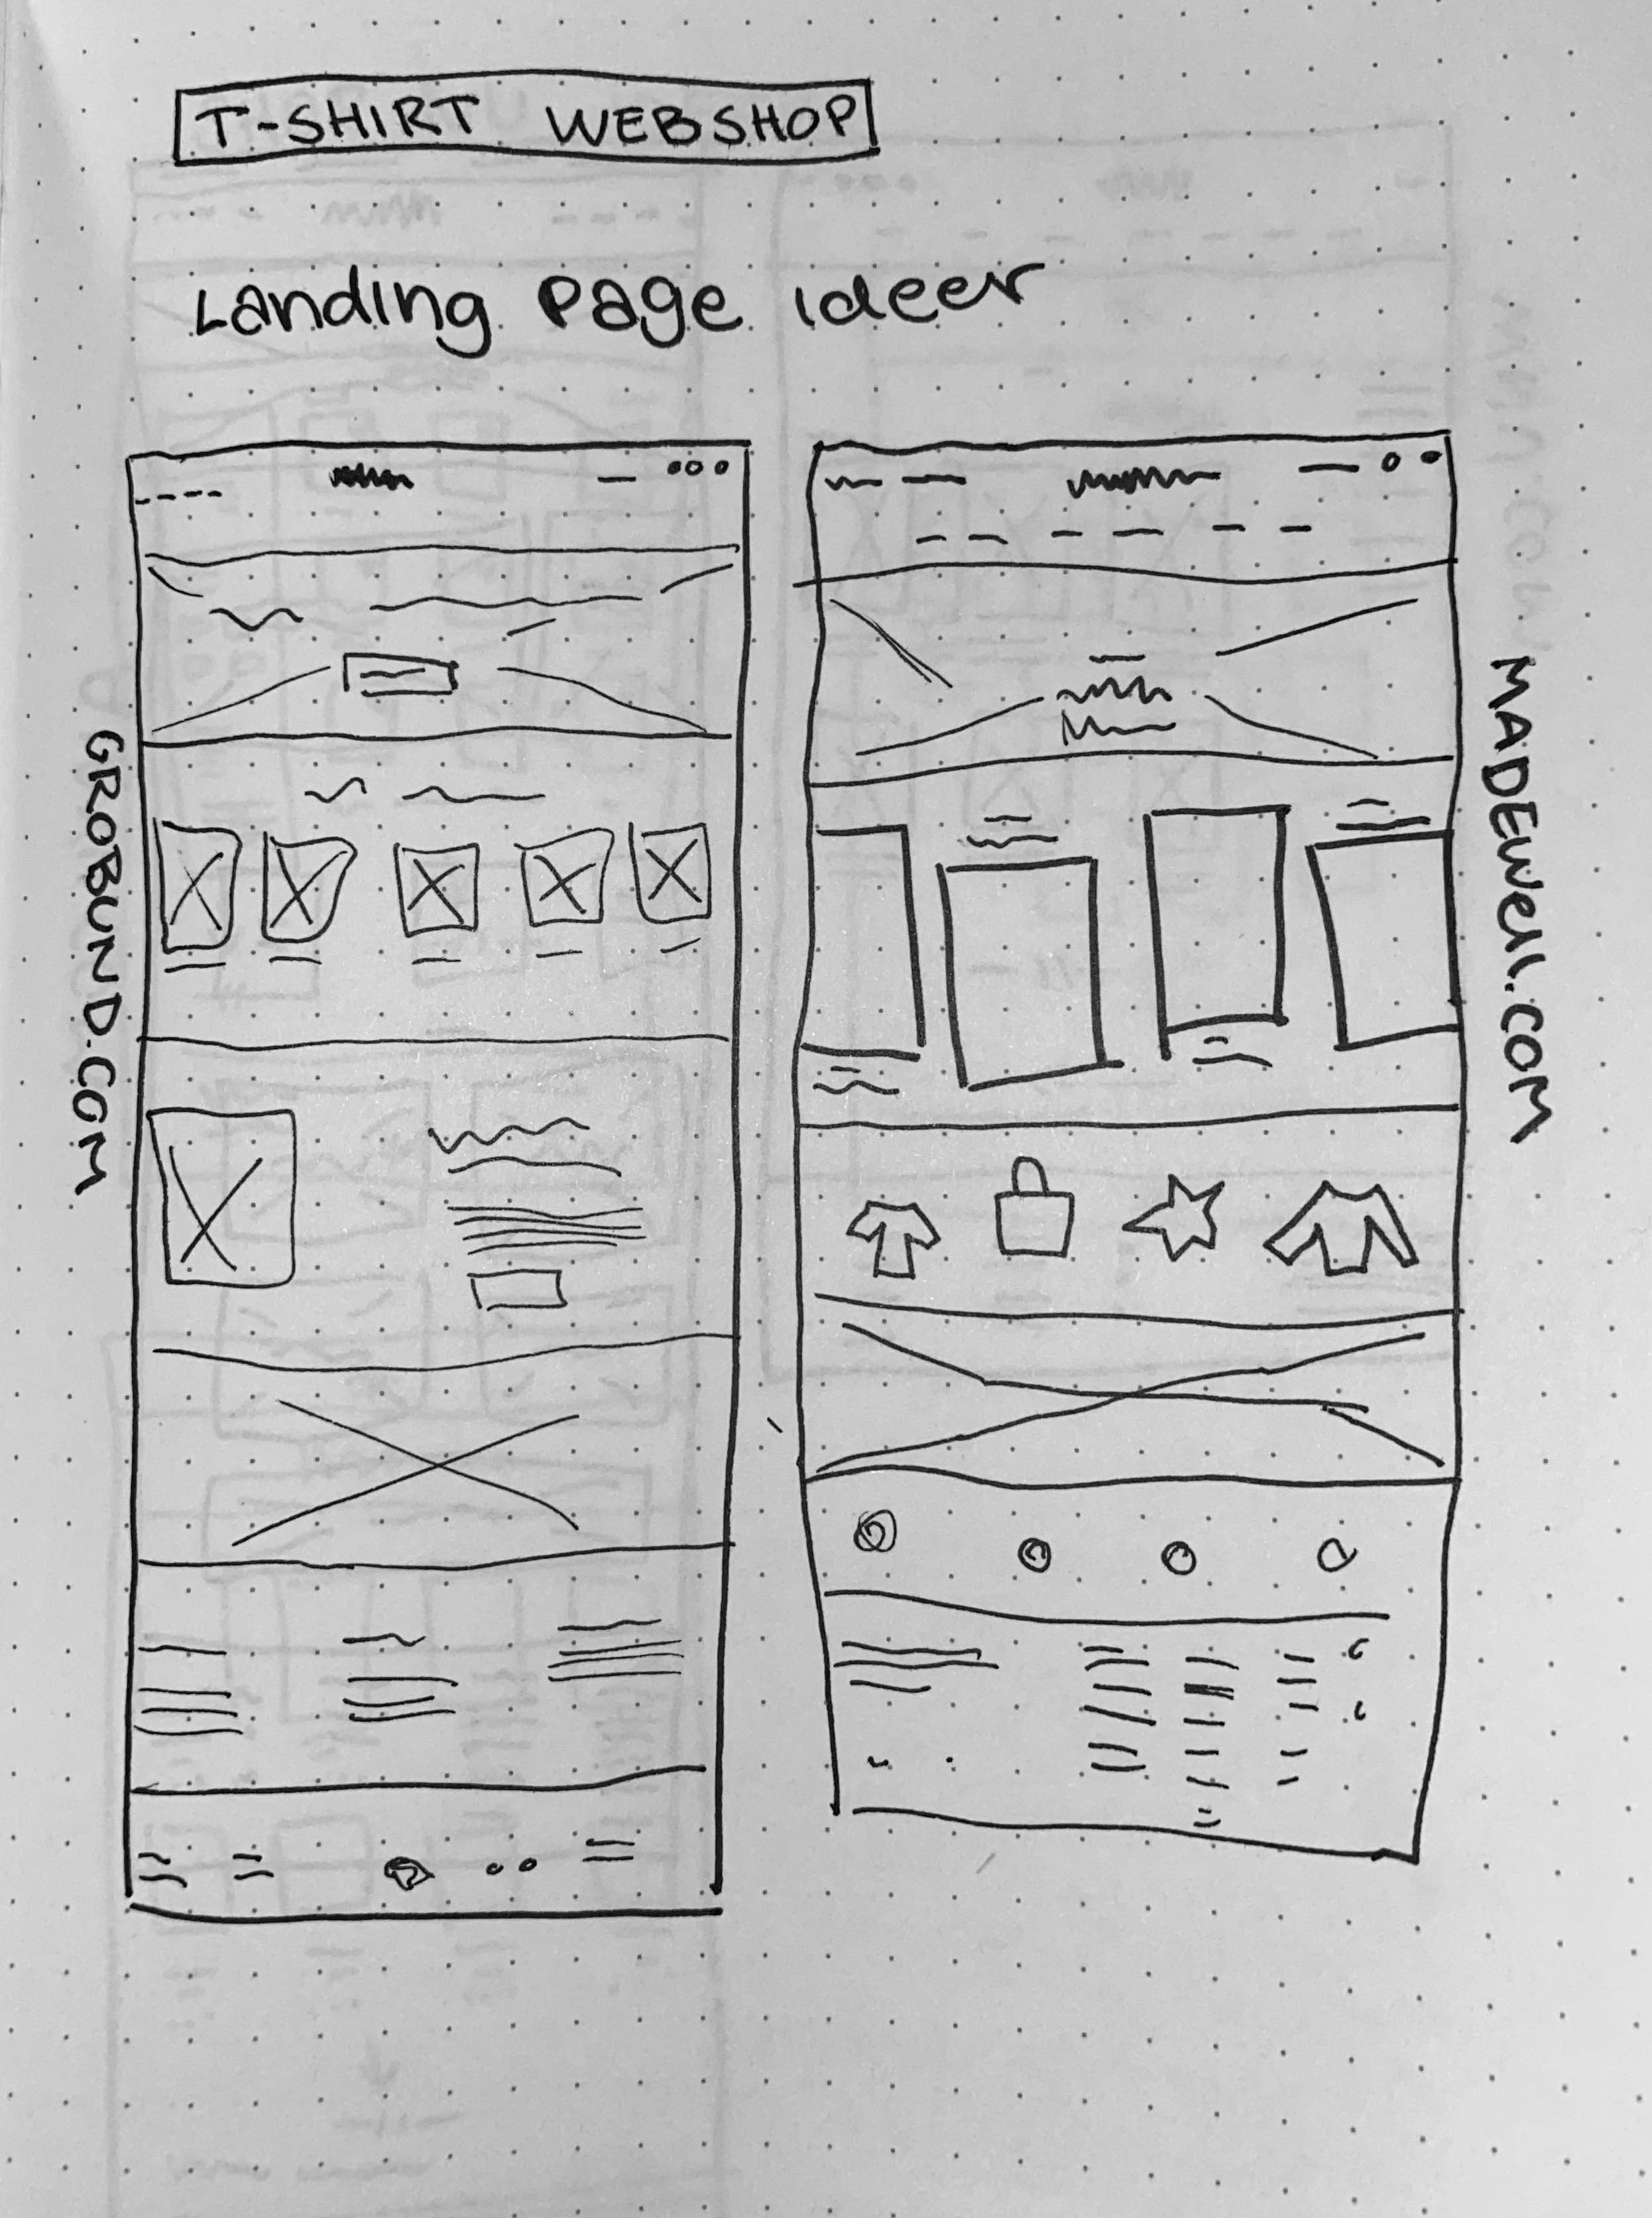 T-SHIRT WEBSHOP
Landing Page ideer
GROBUND.COM
MADEWell.COM